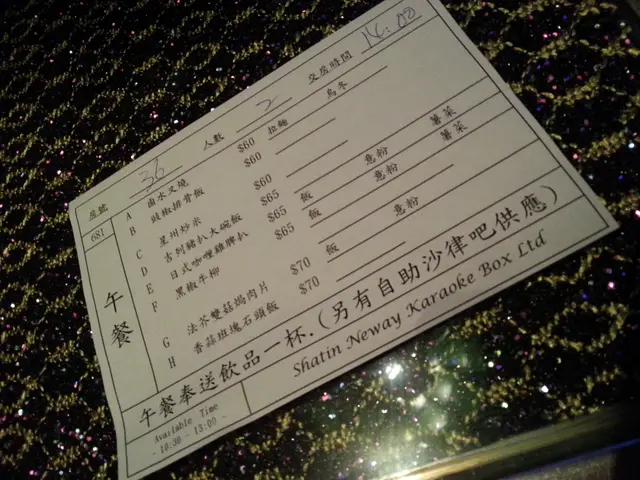 房號 36 人數 2 交房時間 14:00
681
午餐
A 鹵水叉燒 $60 拉麵 烏冬
B 豉椒排骨飯 $60
C 星州炒米 $60
D 吉列豬扒大碗飯 $65
E 日式咖喱雞脾扒 $65 飯 意粉 薯菜
F 黑椒牛柳 $65 飯 意粉 薯菜
G 法芥雙菇焗肉片 $70 飯 意粉
H 香蒜班塊石頭飯 $70
午餐奉送飲品一杯.(另有自助沙律吧供應)
Available Time
- 10:30 - 13:00 -
Shatin Neway Karaoke Box Ltd